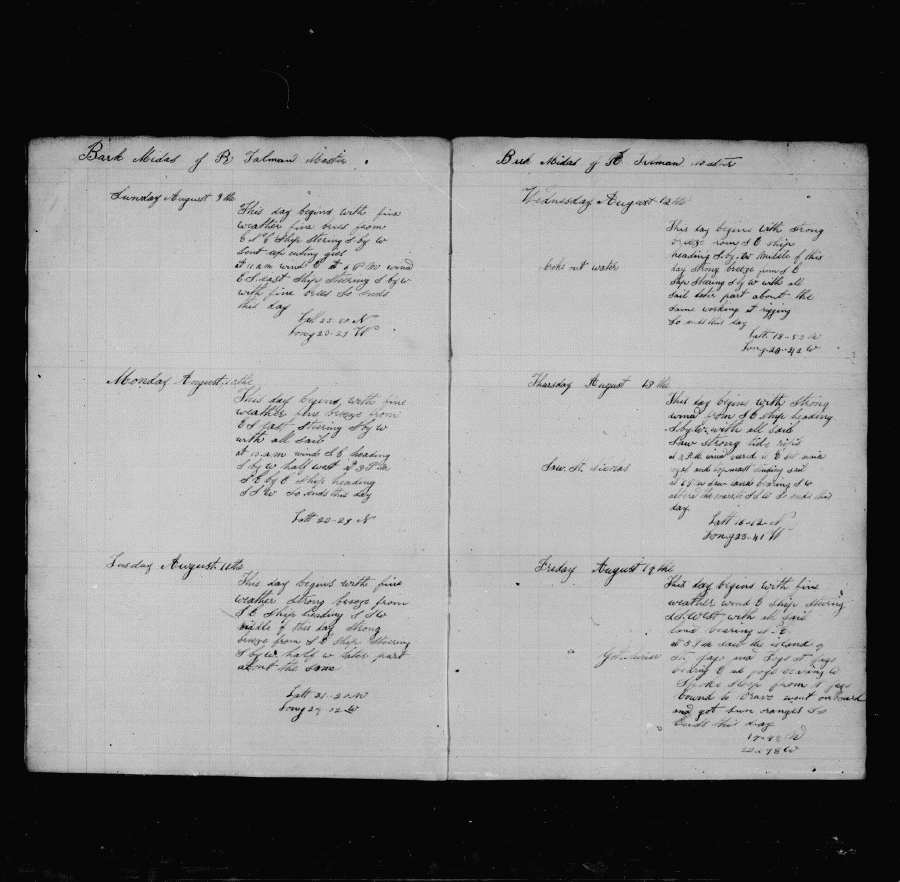 Bark Midas of R Talman Master
Sunday August 9th
This day begins with fine
weather fine bress from
E S E Ship Stering S by W
Sent up cuting gies
at 11 a m wind E at 6 P M wind
E S East Ship Stering S by W
with fine bress So ends
this day
Latt 25-50 N
Long 23-23 W
Monday August 10the
This day begins with fine
weather fine breeze from
E S East Steering S by W
with all sail
at 10 a.m wind S E heading
S by W half west at 3 P M
S E by E Ship heading
S S W So ends this day
Latt 23-23 N
Tusday August 11the
This day begins with fine
weather strong breeze from
S E Ship heading S S W
middle of this day Strong
breeze from S E Ship Steering
S by W half w later part
about the same
Latt 21-20 N
Long 27 02 W
Bark Midas of R Master
Wednesday August 12the
This day begins with strong
breeze from S E ship
heading S.by.W Middle of this
broke out water
day Strong breeze from S E
Ship Stering S by W with all
Sail later part about the
same working at rigging
So ends this day
Latt. 18-53 N
Long-24-42 W
Thursday August 13the
This day begins with Strong
wind from S E ship heading
S by W. with all sail
Saw strong tide rips
at 3 P.M. wind to E Set main
Saw St. Nicolas
royal and topmast studing sail
at 6 P m Saw lands bearing S W
S S W So ends this
day
Latt 16-12-N
Long 23-41 W
Friday August 14the
This day begins with fine
weather wind E Ship Stering
with all sail
land bearing
at 3 P m Saw the island of
bearing E
Spoke Sloop from
bound to Bravo went on board
and got Sum oranges So
Ends this day